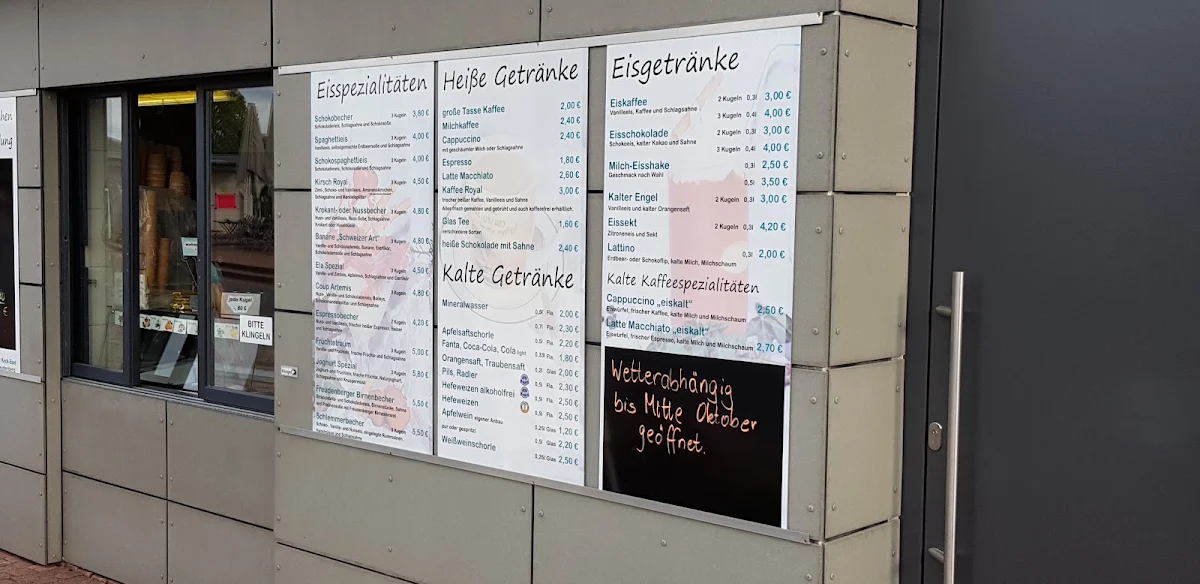 Eisspezialitäten
Schokobecher 3 Kugeln 3,80 €
Schokoladeneis, Schlagsahne und Schokosoße
Spaghettieis 3 Kugeln 4,00 €
Vanilleeis, selbstgemachte Erdbeersoße und Schlagsahne
Schokospaghettieis 3 Kugeln 4,00 €
Schokoladeneis, Schlagsahne
Kirsch Royal 3 Kugeln 4,50 €
Krokant- oder Nussbecher 3 Kugeln 4,80 €
Banane „Schweizer Art" 3 Kugeln 4,80 €
Ela Spezial 3 Kugeln 4,50 €
Coup Artemis 3 Kugeln 4,80 €
Espressobecher 3 Kugeln 4,20 €
Früchtetraum 5,00 €
Joghurt Spezial 3 Kugeln 5,80 €
Freudenberger Birnenbecher 5,50 €
Schlemmerbecher 5,50 €
Heiße Getränke
große Tasse Kaffee 2,00 €
Milchkaffee 2,40 €
Cappuccino 2,40 €
mit geschäumter Milch oder Schlagsahne
Espresso 1,80 €
Latte Macchiato 2,60 €
Kaffee Royal 3,00 €
frischer heißer Kaffee, Vanilleeis und Sahne
Alles frisch gemahlen und gebrüht und auch koffeinfrei erhältlich.
Glas Tee 1,60 €
verschiedene Sorten
heiße Schokolade mit Sahne 2,40 €
Kalte Getränke
Mineralwasser
0,5l Fla. 2,00 €
0,7l Fla. 2,30 €
Apfelsaftschorle 0,5l Fla. 2,20 €
Fanta, Coca-Cola, Cola light 0,33l Fla. 1,80 €
Orangensaft, Traubensaft 0,2l Glas 2,00 €
Pils, Radler 0,5l Fla. 2,30 €
Hefeweizen alkoholfrei 0,5l Fla. 2,50 €
Hefeweizen 0,5l Fla. 2,50 €
Apfelwein eigener Anbau 0,25l Glas 1,20 €
pur oder gespritzt 0,5l Glas 2,20 €
Weißweinschorle 0,25l Glas 2,50 €
Eisgetränke
Eiskaffee 2 Kugeln 0,3l 3,00 €
Vanilleeis, Kaffee und Schlagsahne 3 Kugeln 0,4l 4,00 €
Eisschokolade 2 Kugeln 0,3l 3,00 €
Schokoeis, kalter Kakao und Sahne 3 Kugeln 0,4l 4,00 €
Milch-Eisshake 0,3l 2,50 €
Geschmack nach Wahl 0,5l 3,50 €
Kalter Engel 2 Kugeln 0,3l 3,00 €
Vanilleeis und kalter Orangensaft
Eissekt 2 Kugeln 0,3l 4,20 €
Zitroneneis und Sekt
Lattino 0,3l 2,00 €
Erdbeer- oder Schokoflip, kalte Milch, Milchschaum
Kalte Kaffeespezialitäten
Cappuccino „eiskalt" 2,50 €
Eiswürfel, frischer Kaffee, kalte Milch und Milchschaum
Latte Macchiato „eiskalt" 2,70 €
Eiswürfel, frischer Espresso, kalte Milch und Milchschaum
Wetterabhängig
bis Mitte Oktober
geöffnet.
jede Kugel
BITTE
KLINGELN